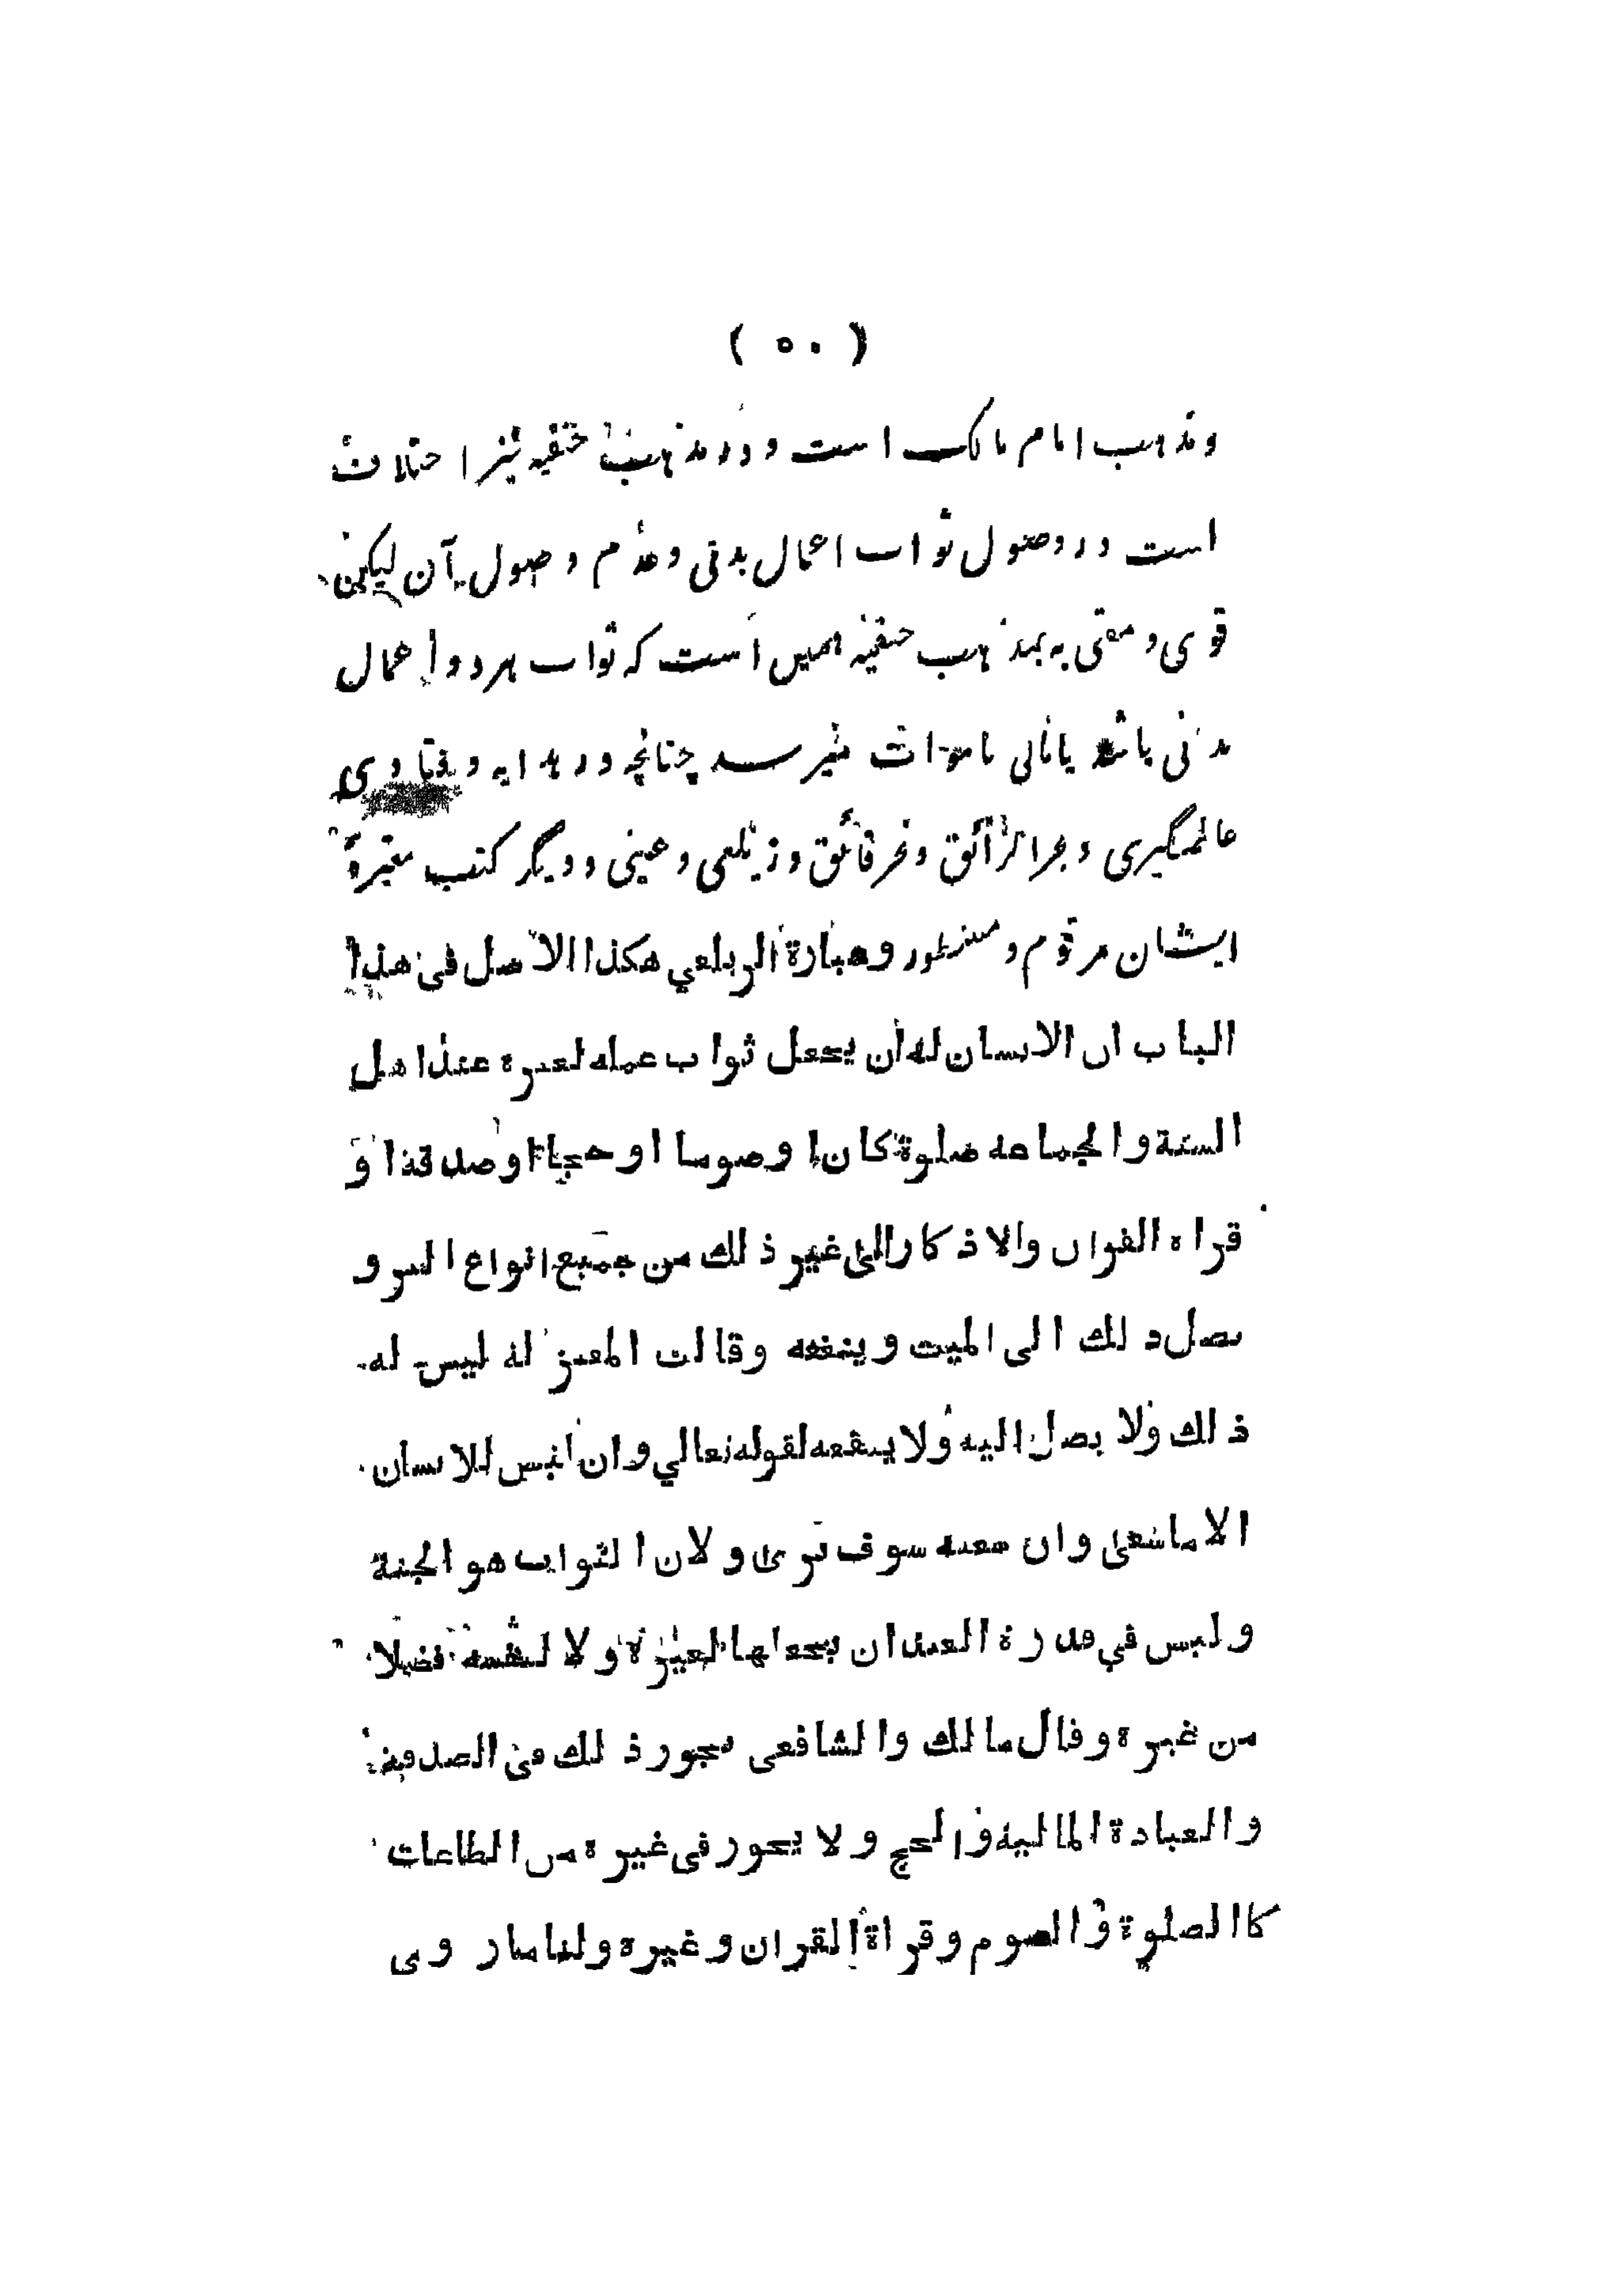 ( ٥٠ )
ومذهب امام مالک است و در مذهب حنفیه نیز اختلاف
است در وصول ثواب اعمال بدنی و عدم وصول آن لیکن
قوی و مفتی به بمذهب حنفیه همین است که ثواب هر دو اعمال
بدنی باشد یا مالی باموات میرسد چنانچه در هدایه و فتاوی
عالمگیری و بحر الرائق و نهر فائق و زیلعی و عینی و دیگر کتب معتبره
ایشان مرقوم و مسطور وعبارة الزيلعي هكذا الاصل فی هذا
الباب ان الانسان له ان يجعل ثواب عمله لغيره عند اهل
السنة والجماعه صلوة كان او صوما او حجا او صدقة او
قراه القران والاذكار الى غير ذلك من جميع انواع البر و
يصل ذلك الى الميت وينفعه وقالت المعتزلة ليس له
ذلك ولا يصل اليه ولا ينفعه لقوله تعالي وان ليس للانسان
الا ما سعى وان سعيه سوف يرى ولان الثواب هو الجنة
وليس في قدرة العبد ان يجعلها لغيره ولا لنفسه فضلا
من غيره وقال مالك والشافعى يجوز ذلك فى الصدقة
والعبادة المالية والحج ولا يجوز فى غيره من الطاعات
كالصلوة والصوم وقراة القران وغيره ولنا ما روى